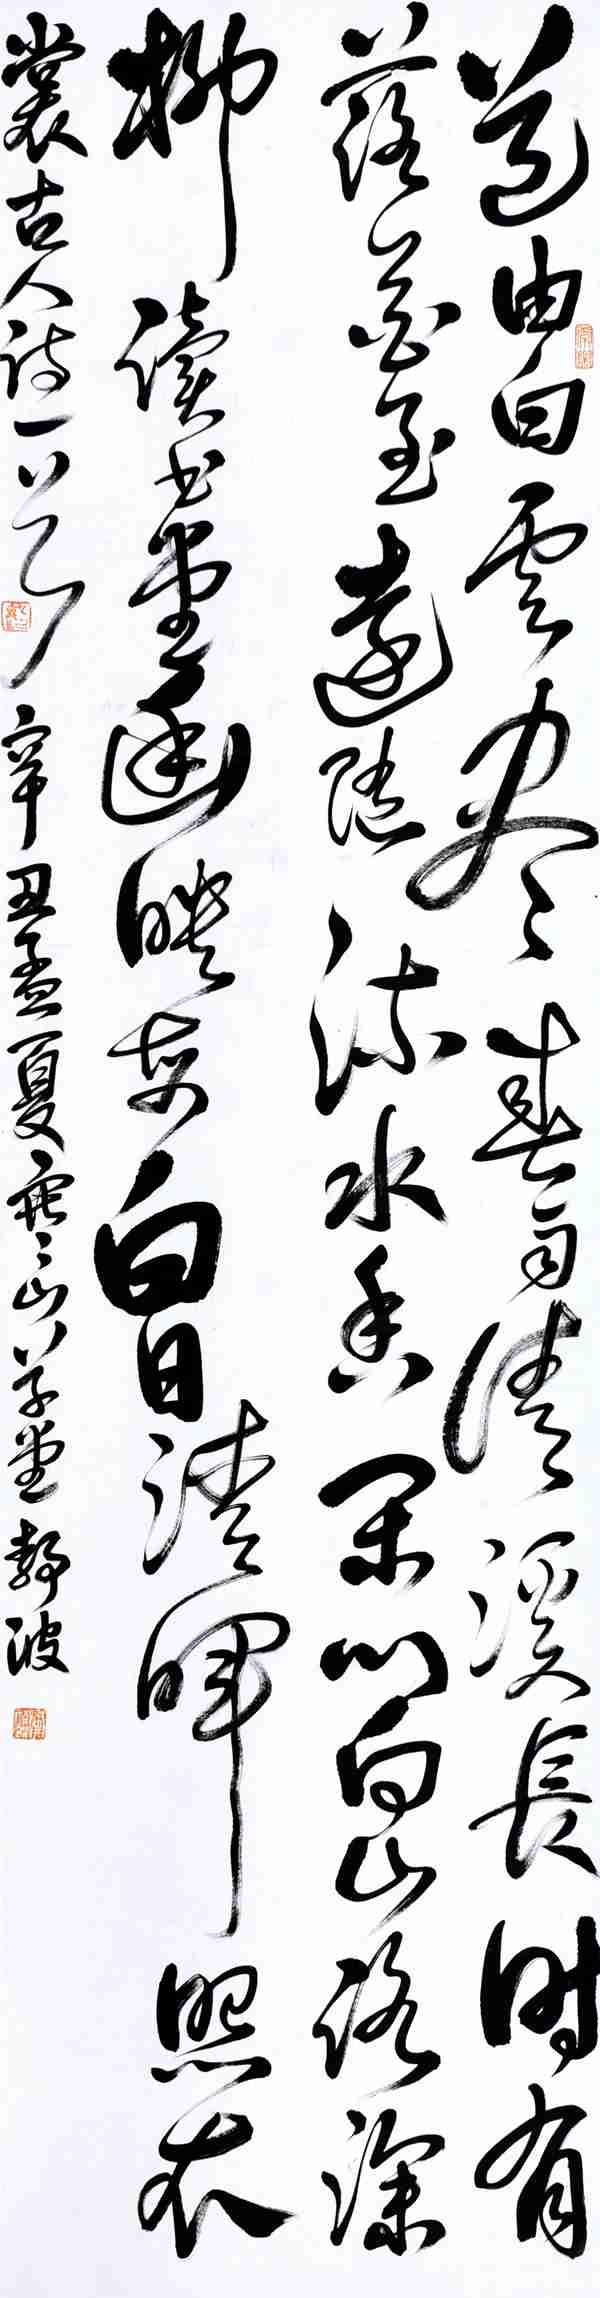 道由白雲盡春与清溪長時有
落花至遠隨流水香閑門向山路深
柳讀书堂幽映每白日清暉照衣
裳古人诗一首辛丑孟夏山草堂静波